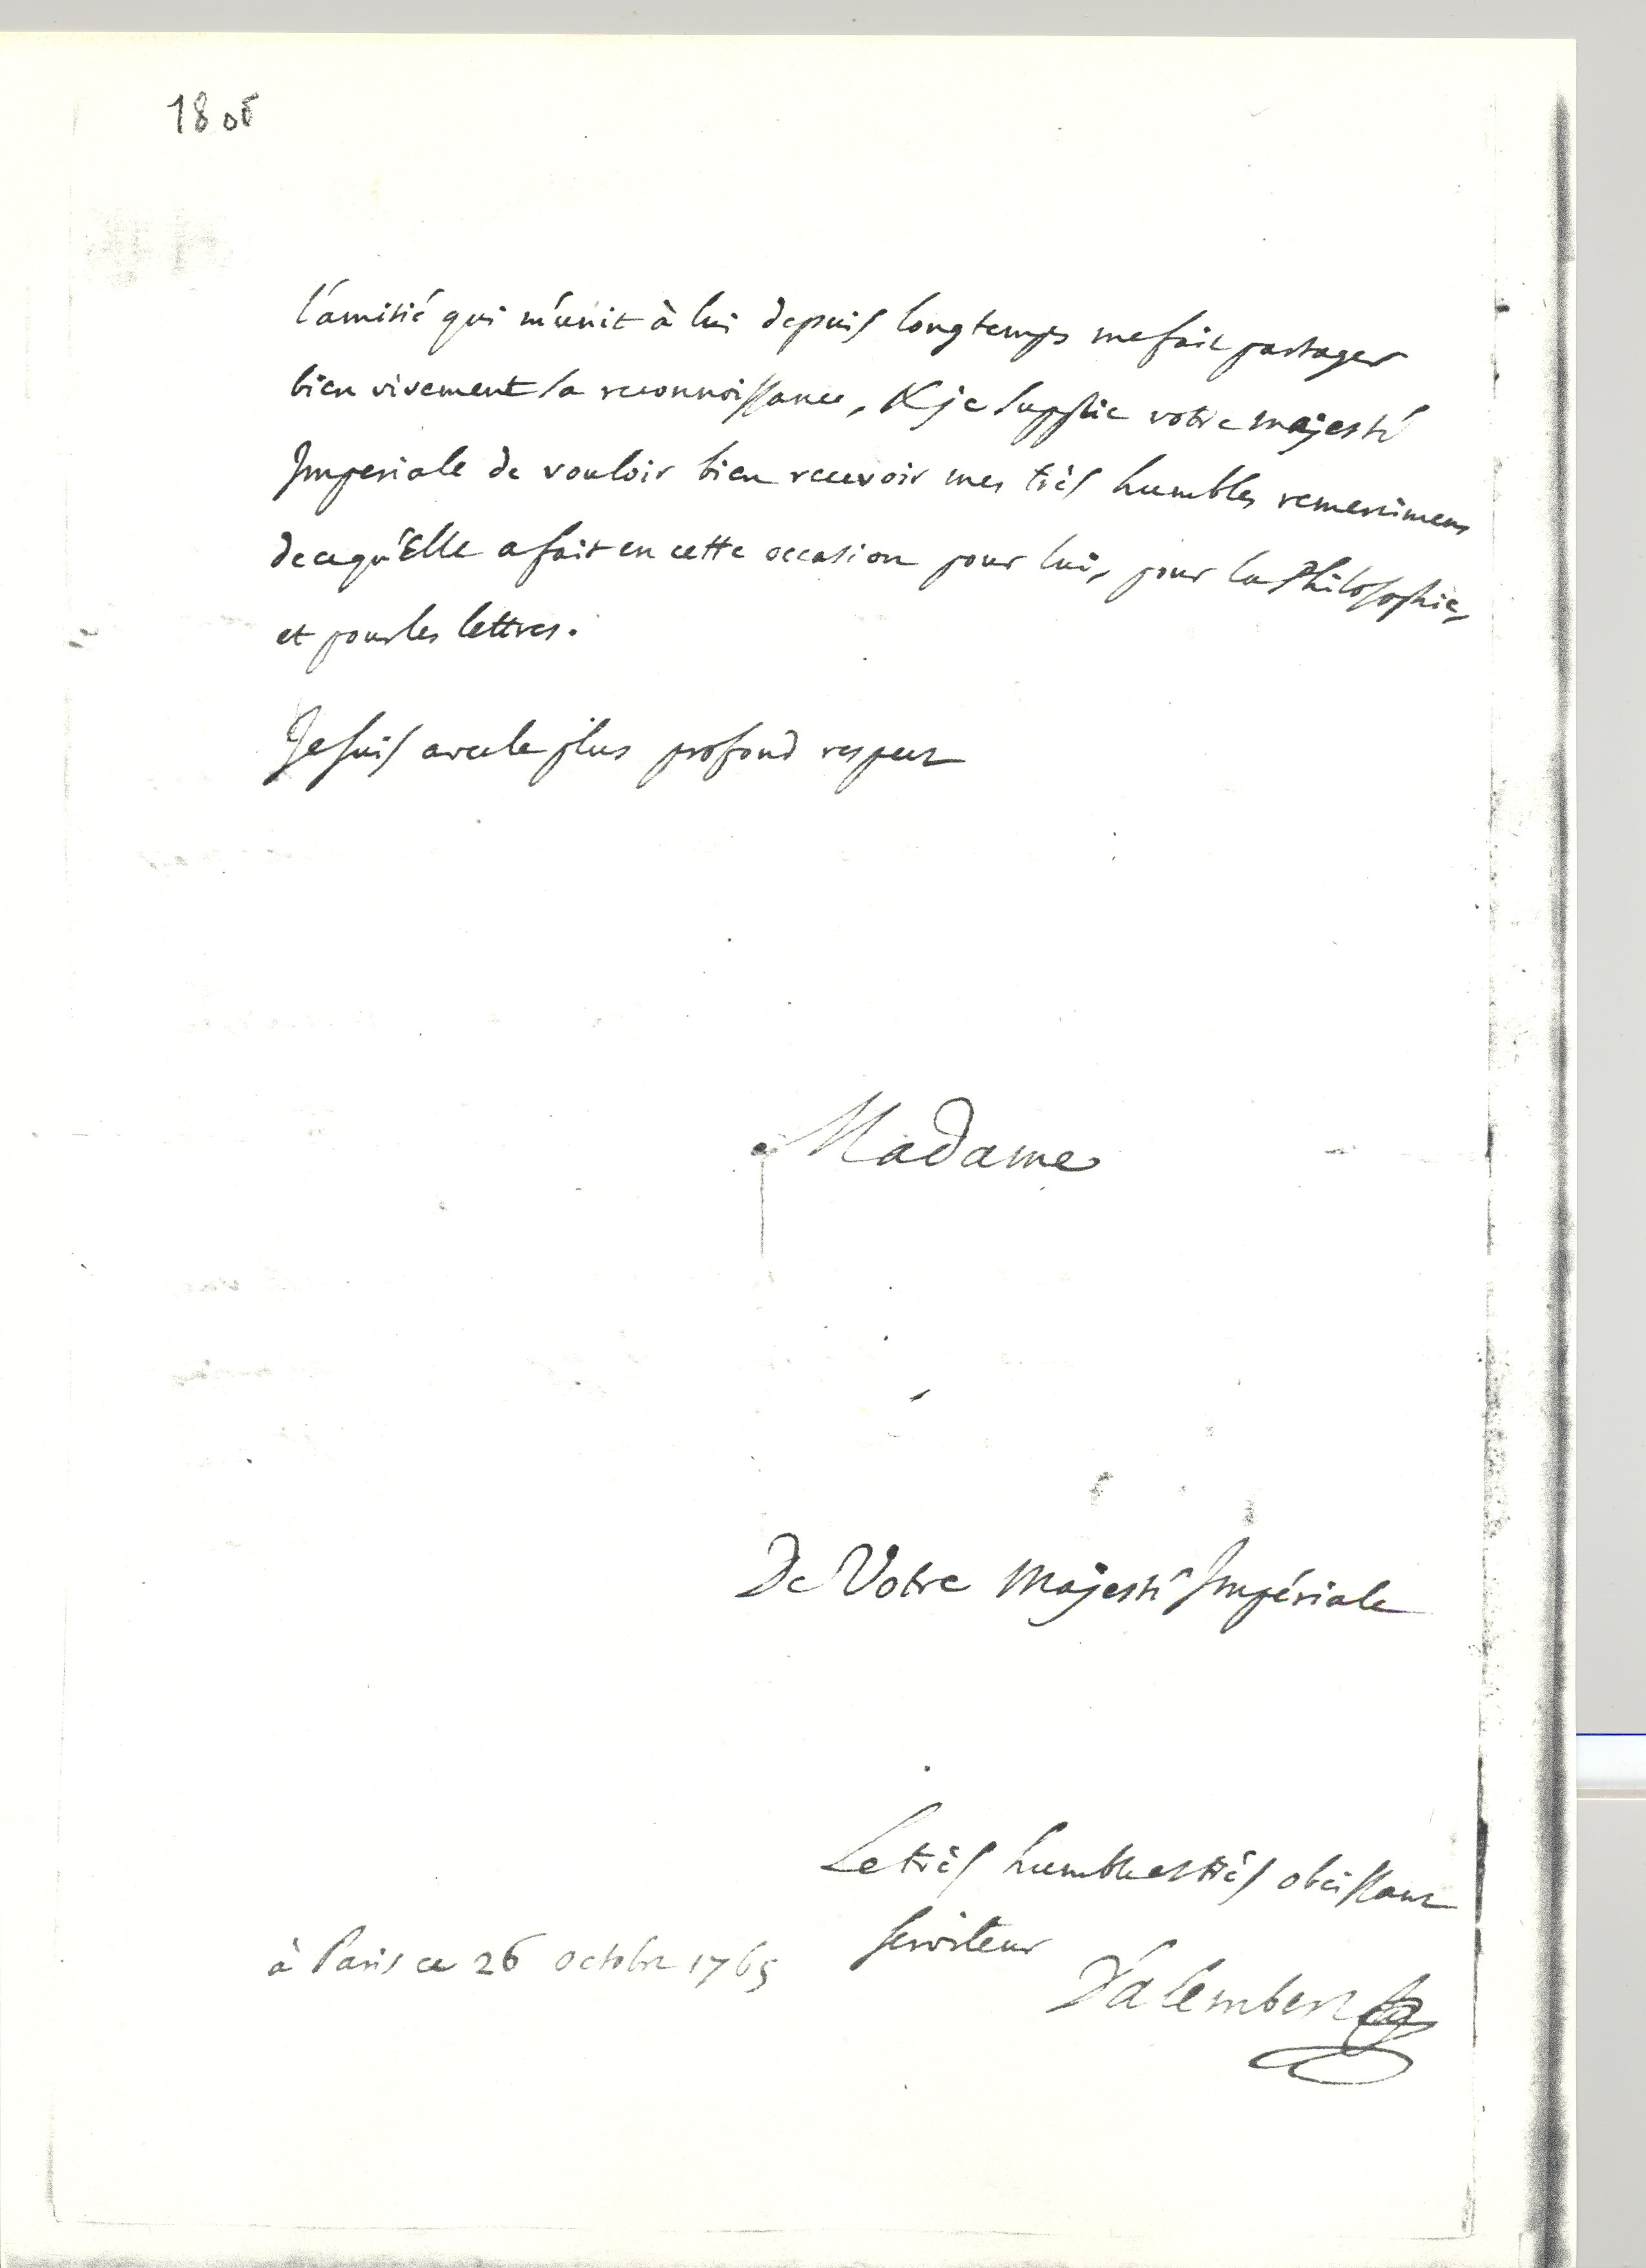 180r
l'amitié qui m'unit à lui depuis longtemps me fait partager
bien vivement sa reconnoissance, & je supplie votre majesté
Imperiale de vouloir bien recevoir mes très humbles remercimens
de ce qu'Elle a fait en cette occasion pour lui, pour la Philosophie,
et pour les lettres.
Je suis avec le plus profond respect
Madame
De Votre Majesté Impériale
Le très humble et très obéissant
serviteur
D'alembert
à Paris ce 26 octobre 1765